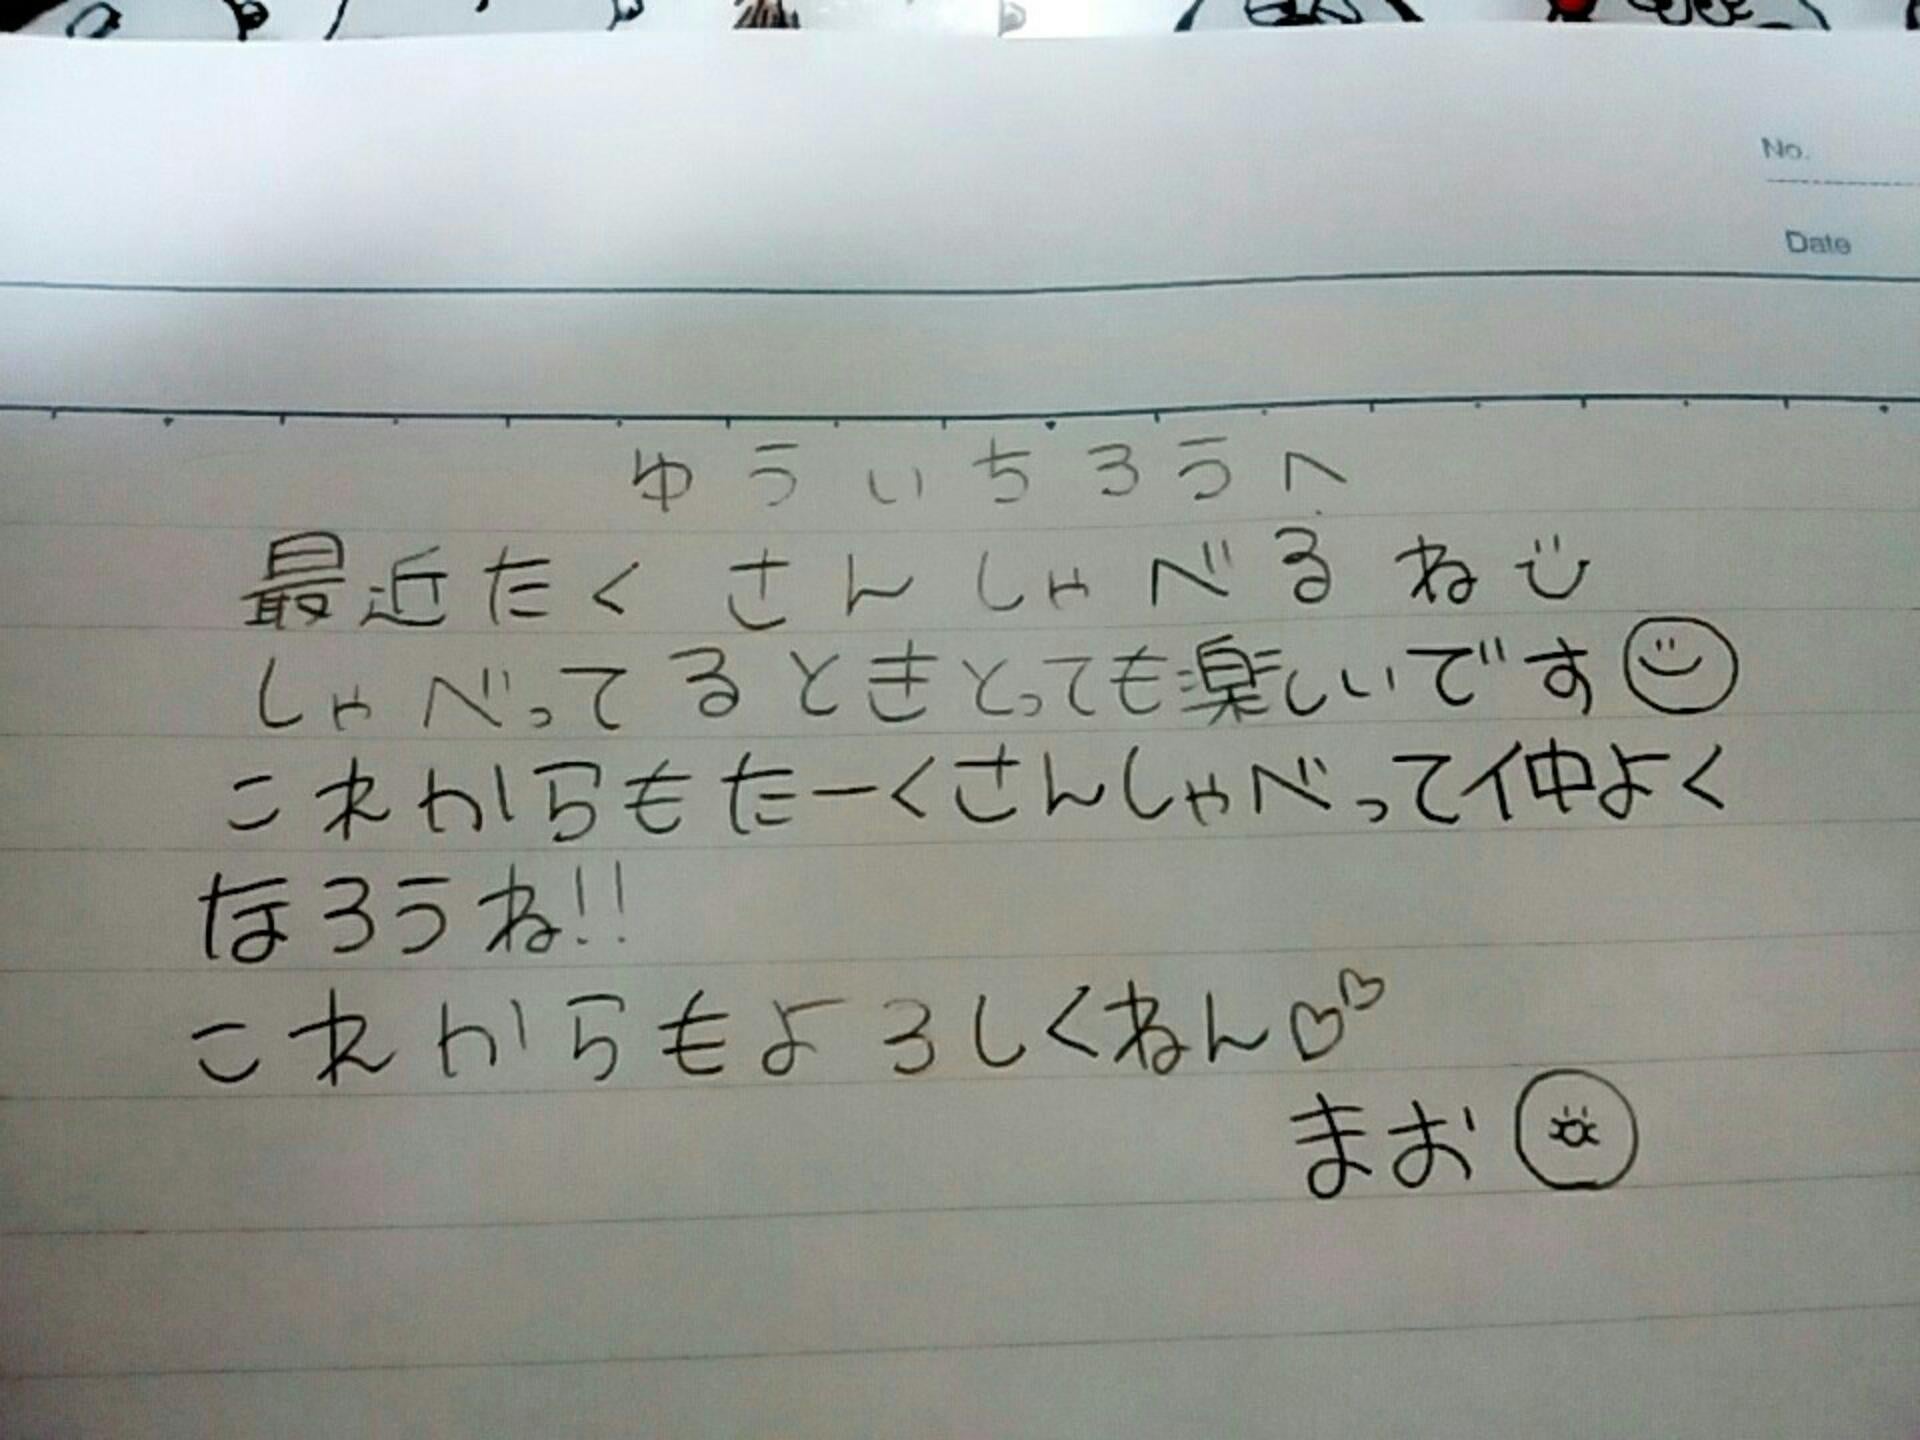 No.
Date
ゆういちろうへ
最近たくさんしゃべるね
しゃべってるときとっても楽しいです
これからもたーくさんしゃべって仲よく
なろうね!!
これからもよろしくねん♡♡
まお